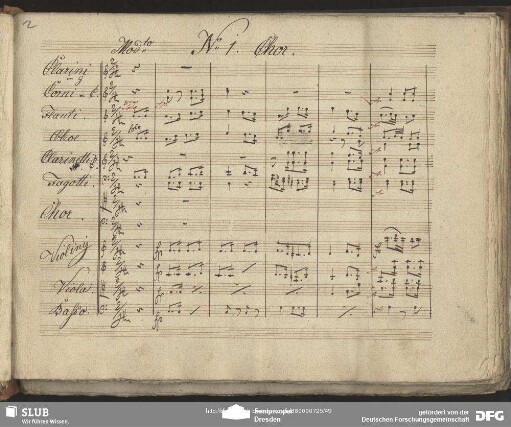 2
Mod:to No 1. Chor.
Clarini
Corni in C.
Flauti.
Oboe
Clarinetti
Fagotti.
Chor.
Violini
Viola.
Basso.
SLUB
Wir führen Wissen.
Semperoper
Dresden
gefördert von der
Deutschen Forschungsgemeinschaft
DFG